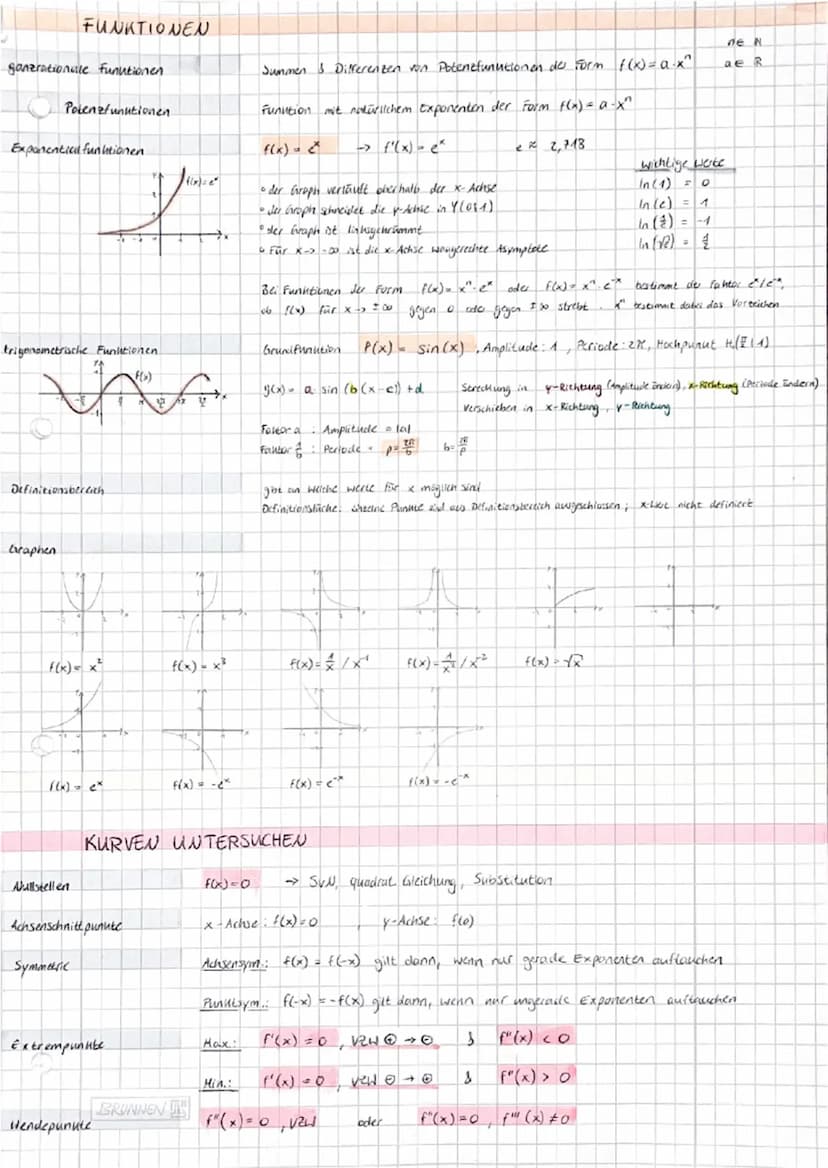 FUNKTIONEN
n∈ N
ganzrationale Funktionen Summen & Differenzen von Potenzfunktionen der Form f(x) = a·xⁿ a∈ R
Potenzfunktionen Funktion mit natürlichem Exponenten der Form f(x) = a·xⁿ
Exponentialfunktionen f(x) = eˣ -> f'(x) = eˣ e ≈ 2,718
wichtige Werte
f(x) = eˣ
ln(1) = 0
° der Graph verläuft oberhalb der x-Achse
ln(e) = 1
° der Graph schneidet die y-Achse in Y(0|1)
ln(1/e) = -1
° der Graph ist linksgekrümmt
ln(√e) = 1/2
° Für x-> -∞ ist die x-Achse waagerechte Asymptote
Bei Funktionen der Form f(x) = xⁿ·eˣ oder f(x) = xⁿ·e⁻ˣ bestimmt der Faktor eˣ/e⁻ˣ,
ob f(x) für x -> ±∞ gegen 0 oder gegen ±∞ strebt. xⁿ bestimmt dabei das Vorzeichen
trigonometrische Funktionen Grundfunktion f(x) = sin(x), Amplitude: 1, Periode: 2π, Hochpunkt H(π/2|1)
f(x)
g(x) = a sin (b(x-c)) + d Streckung in y-Richtung (Amplitude ändern), x-Richtung (Periode ändern)
Verschieben in x-Richtung, y-Richtung
Faktor a : Amplitude = |a|
Faktor 1/b : Periode = p = 2π/b b = 2π/p
Definitionsbereich gibt an welche Werte für x möglich sind
Definitionslücke: einzelne Punkte sind aus Definitionsbereich ausgeschlossen; x-Wert nicht definiert
Graphen
f(x) = x² f(x) = x³ f(x) = 1/x / x⁻¹ f(x) = 1/x² / x⁻² f(x) = √x
f(x) = eˣ f(x) = -eˣ f(x) = e⁻ˣ f(x) = -e⁻ˣ
KURVEN UNTERSUCHEN
Nullstellen f(x) = 0 -> SvN, quadrat. Gleichung, Substitution
Achsenschnittpunkte x-Achse: f(x) = 0, y-Achse: f(0)
Symmetrie Achsensym.: f(x) = f(-x) gilt dann, wenn nur gerade Exponenten auftauchen
Punktsym.: f(-x) = -f(x) gilt dann, wenn nur ungerade Exponenten auftauchen
Extrempunkte Max.: f'(x) = 0, VZW ⊕ → ⊖ & f''(x) < 0
Min.: f'(x) = 0, VZW ⊖ → ⊕ & f''(x) > 0
BRUNNEN
Wendepunkte f''(x) = 0, VZW oder f''(x) = 0, f'''(x) ≠ 0